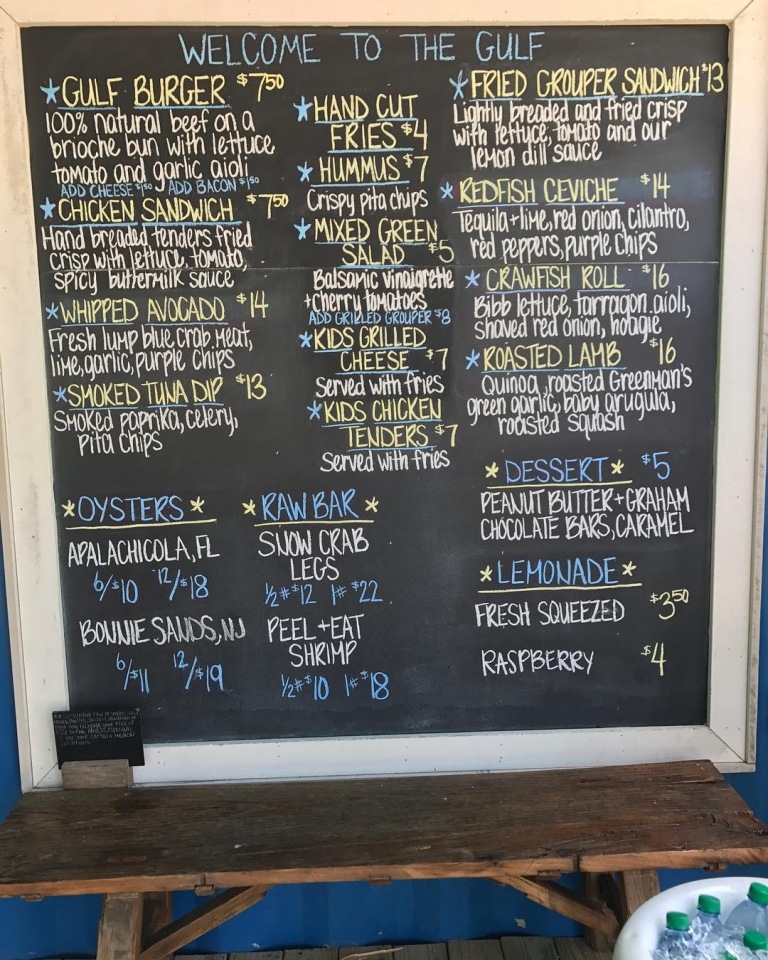 WELCOME TO THE GULF
*GULF BURGER $7.50
100% natural beef on a
brioche bun with lettuce
tomato and garlic aioli
ADD CHEESE $1.50 ADD BACON $1.50
*CHICKEN SANDWICH $7.50
Hand breaded tenders fried
crisp with lettuce, tomato,
spicy buttermilk sauce
*WHIPPED AVOCADO $14
Fresh lump blue crab meat,
lime, garlic, purple chips
*SMOKED TUNA DIP $13
Smoked paprika, celery,
Pita chips
*HAND CUT
FRIES $4
*HUMMUS $7
Crispy pita chips
*MIXED GREEN
SALAD $5
Balsamic vinaigrette
+cherry tomatoes
ADD GRILLED GROUPER $8
*KIDS GRILLED
CHEESE $7
Served with fries
*KIDS CHICKEN
TENDERS $7
Served with fries
*FRIED GROUPER SANDWICH $13
Lightly breaded and fried crisp
with lettuce, tomato and our
lemon dill sauce
*REDFISH CEVICHE $14
Tequila+lime, red onion, cilantro,
red peppers, purple chips
*CRAWFISH ROLL $16
Bibb lettuce, tarragon aioli,
shaved red onion, hoagie
*ROASTED LAMB $16
Quinoa, roasted Greenman's
green garlic, baby arugula,
roasted squash
*OYSTERS*
APALACHICOLA, FL
6/$10 12/$18
BONNIE SANDS, NJ
6/$11 12/$19
*RAW BAR*
SNOW CRAB
LEGS
1/2# $12 1# $22
PEEL+EAT
SHRIMP
1/2# $10 1# $18
*DESSERT* $5
PEANUT BUTTER+GRAHAM
CHOCOLATE BARS, CARAMEL
*LEMONADE*
FRESH SQUEEZED $3.50
RASPBERRY $4